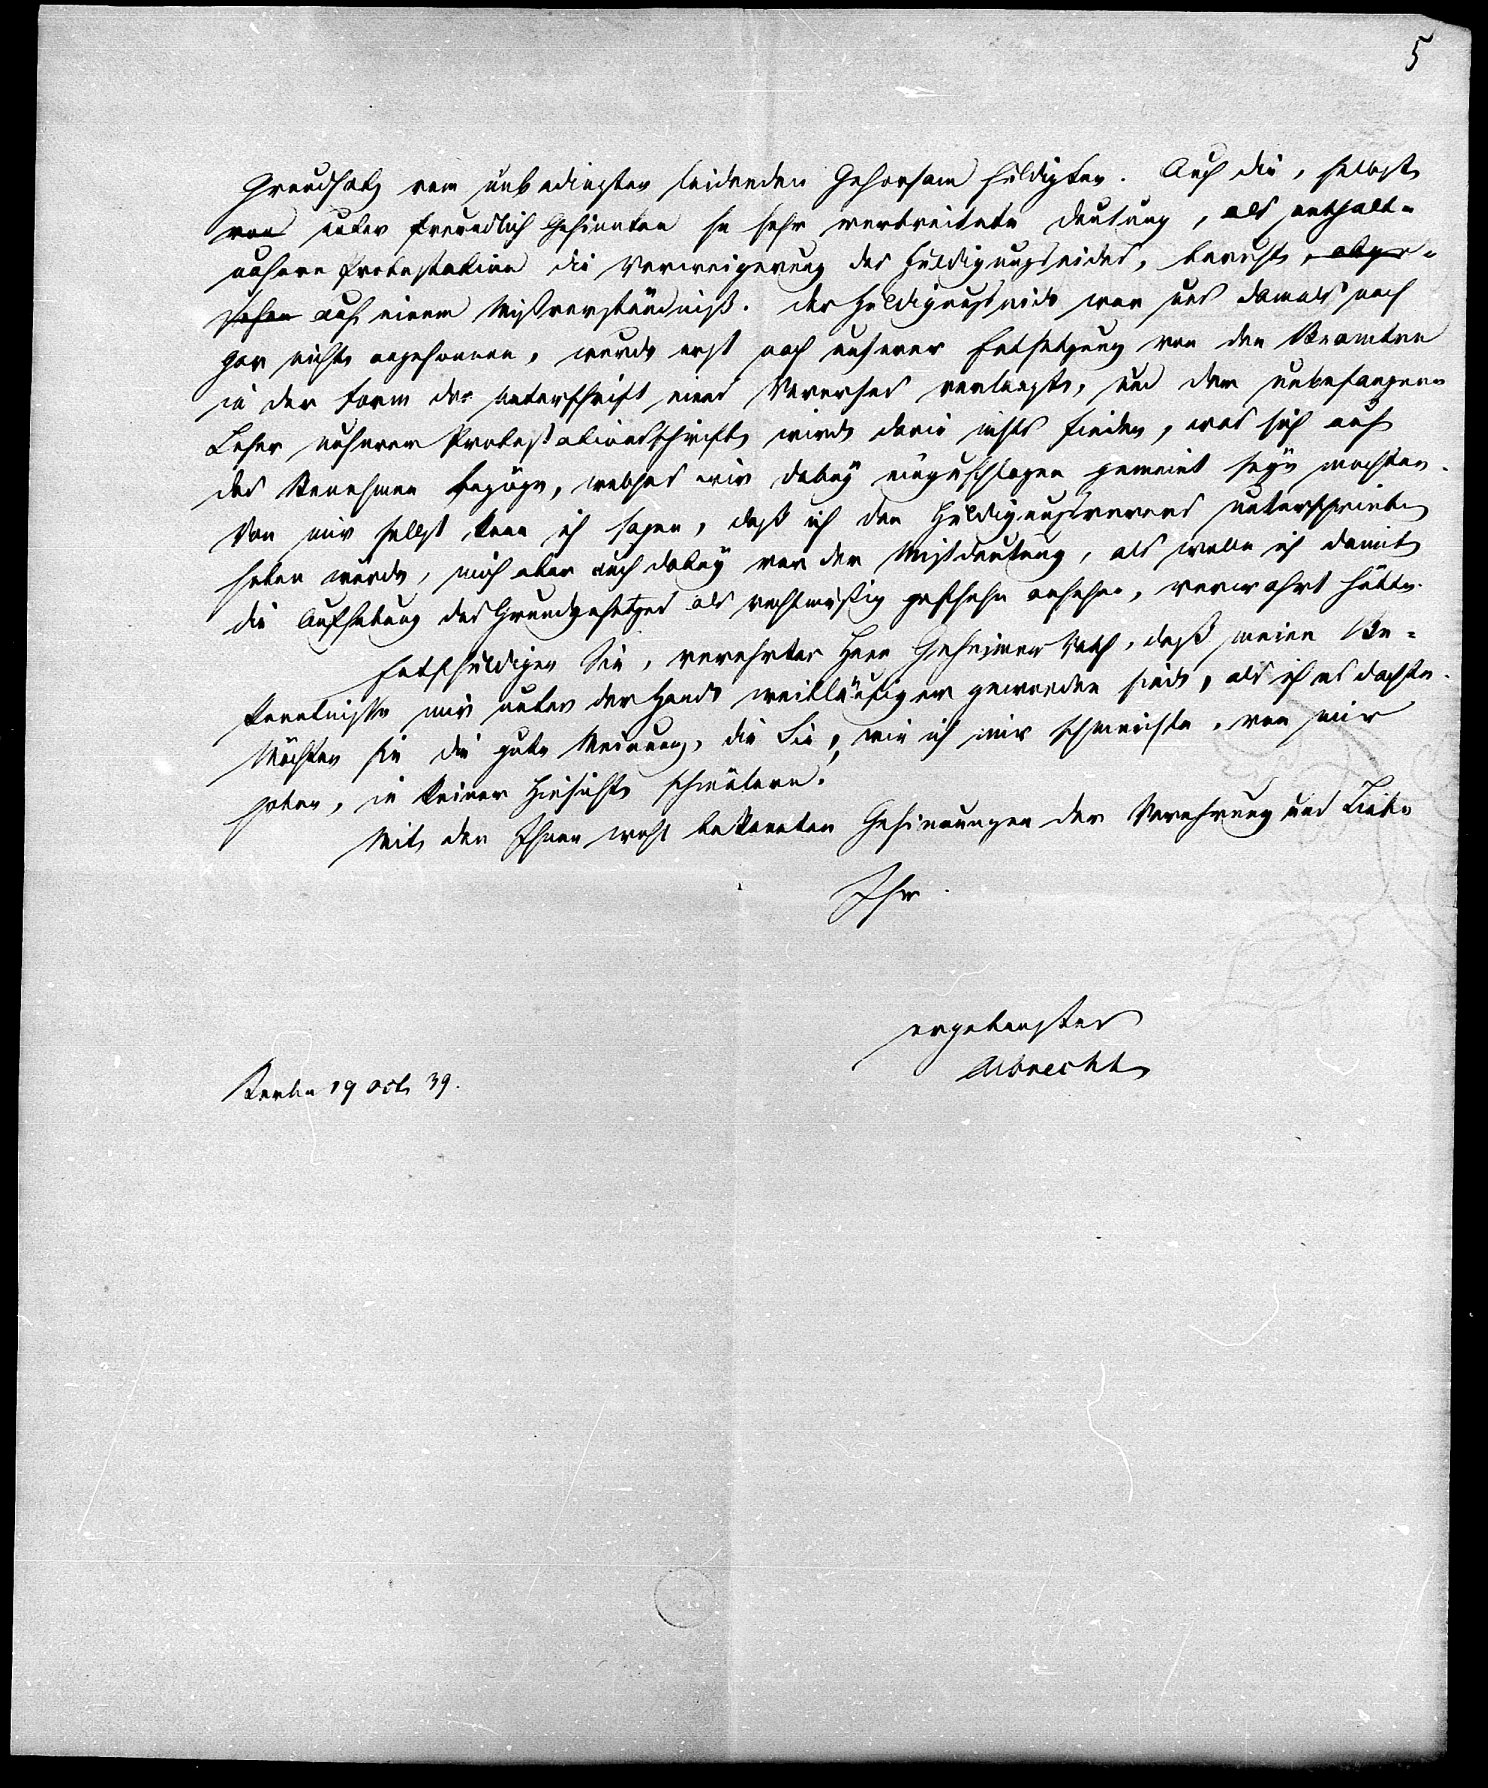 5
Grundsatz vom unbedingten leidenden Gehorsam huldigten. Auch die, selbst
von unter freundlich Gesinnten so sehr verbreitete Deutung, als enthalte
unsere Protestation die Verweigerung des Huldigungseides, beruht, abge-
sehen auf einem Mißverständniß. Der Huldigungseid war uns damals noch
gar nicht angesonnen, wurde erst nach unserer Entsetzung von den Beamten
in der Form der Unterschrift eines Reverses verlangt, und der unbefangene
Leser unserer Protestationsschrift wird darin nichts finden, was sich auf
das Benehmen bezöge, welches wir dabey einzuschlagen gemeint seyn mochten.
Von mir selbst kann ich sagen, daß ich den Huldigungsrevers unterschrieben
haben würde, mich aber auch dabey vor der Mißdeutung, als wolle ich damit
die Aufhebung des Grundgesetzes als rechtmäßig geschehn ansehen, verwahrt hätte.
Entschuldigen Sie, verehrter Herr Geheimer Rath, daß meine Be-
kenntnisse mir unter der Hand weitläufiger geworden sind, als ich es dachte.
Möchten sie die gute Meinung, die Sie, wie ich mir schmeichle, von mir
haben, in keiner Hinsicht schmälern.
Mit den Ihnen wohl bekannten Gesinnungen der Verehrung und Liebe
Ihr
ergebenster
Albrecht
Berlin 19 Oct 39.